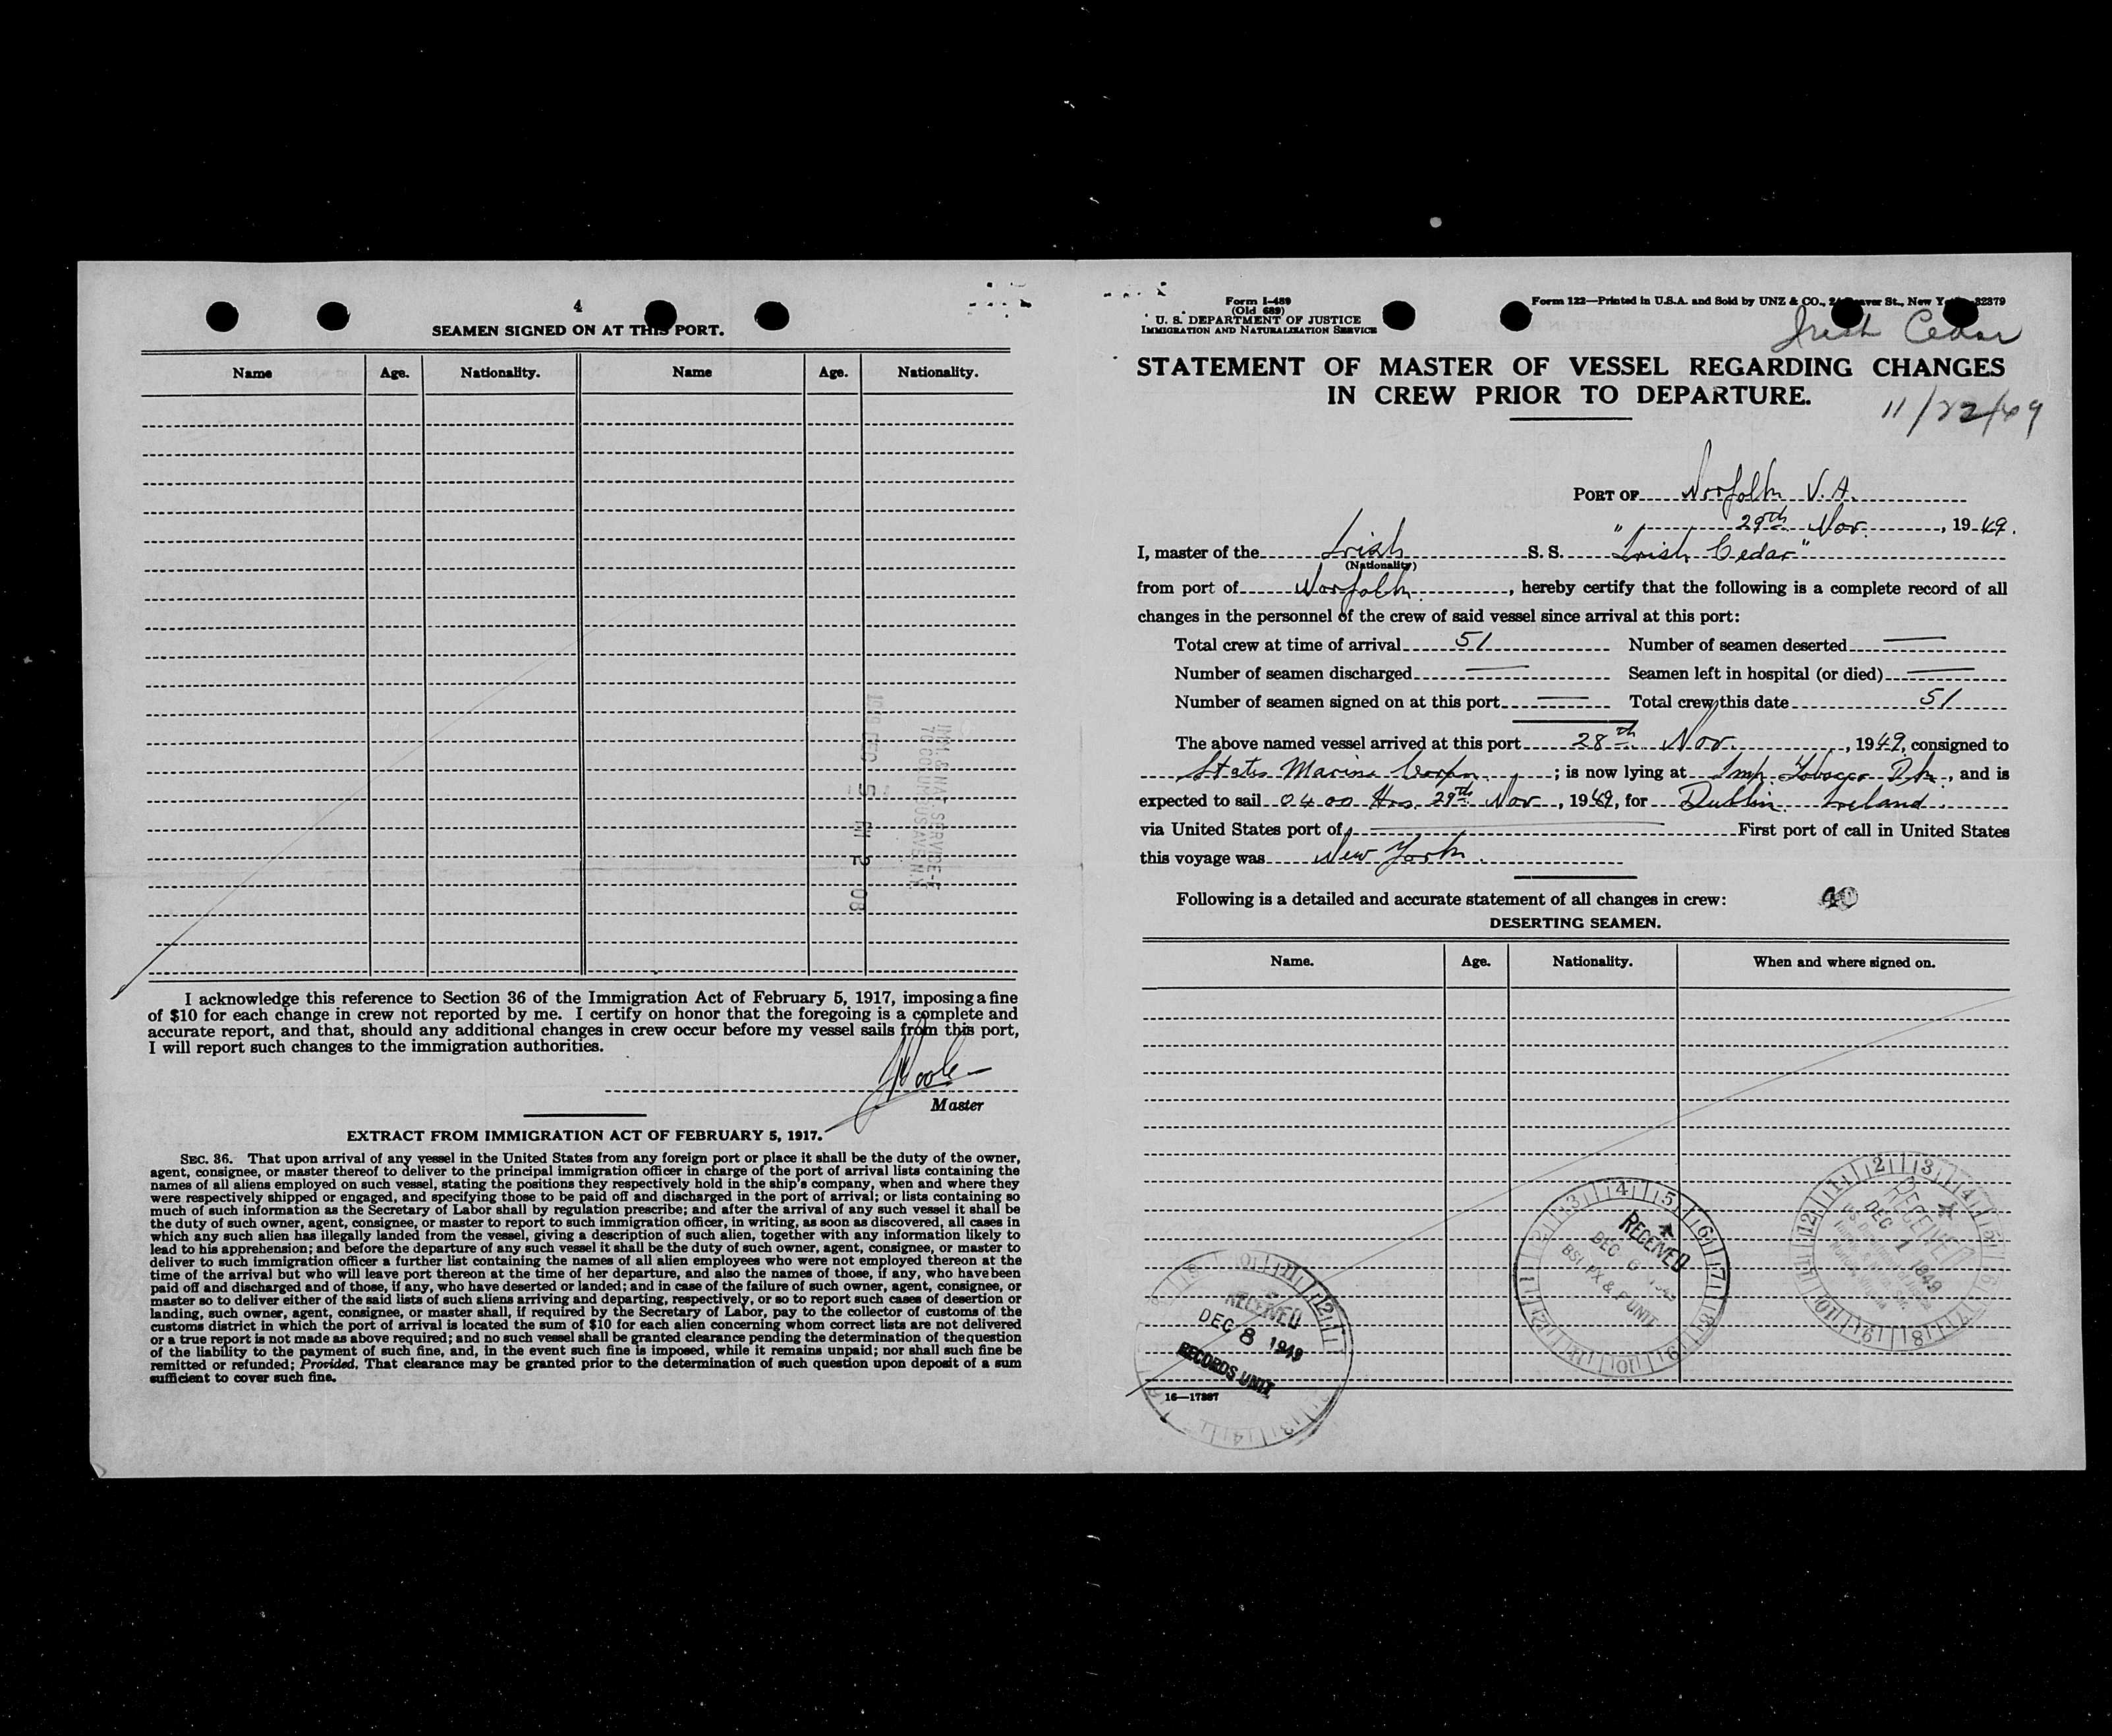 4
SEAMEN SIGNED ON AT THIS PORT.
Name Age. Nationality. Name Age. Nationality.
I acknowledge this reference to Section 36 of the Immigration Act of February 5, 1917, imposing a fine
of $10 for each change in crew not reported by me. I certify on honor that the foregoing is a complete and
accurate report, and that, should any additional changes in crew occur before my vessel sails from this port,
I will report such changes to the immigration authorities.
Master
EXTRACT FROM IMMIGRATION ACT OF FEBRUARY 5, 1917.
SEC. 36. That upon arrival of any vessel in the United States from any foreign port or place it shall be the duty of the owner,
agent, consignee, or master thereof to deliver to the principal immigration officer in charge of the port of arrival lists containing the
names of all aliens employed on such vessel, stating the positions they respectively hold in the ship's company, when and where they
were respectively shipped or engaged, and specifying those to be paid off and discharged in the port of arrival; or lists containing so
much of such information as the Secretary of Labor shall by regulation prescribe; and after the arrival of any such vessel it shall be
the duty of such owner, agent, consignee, or master to report to such immigration officer, in writing, as soon as discovered, all cases in
which any such alien has illegally landed from the vessel, giving a description of such alien, together with any information likely to
lead to his apprehension; and before the departure of any such vessel it shall be the duty of such owner, agent, consignee, or master to
deliver to such immigration officer a further list containing the names of all alien employees who were not employed thereon at the
time of the arrival but who will leave port thereon at the time of her departure, and also the names of those, if any, who have been
paid off and discharged and of those, if any, who have deserted or landed; and in case of the failure of such owner, agent, consignee, or
master so to deliver either of the said lists of such aliens arriving and departing, respectively, or so to report such cases of desertion or
landing, such owner, agent, consignee, or master shall, if required by the Secretary of Labor, pay to the collector of customs of the
customs district in which the port of arrival is located the sum of $10 for each alien concerning whom correct lists are not delivered
or a true report is not made as above required; and no such vessel shall be granted clearance pending the determination of the question
of the liability to the payment of such fine, and, in the event such fine is imposed, while it remains unpaid; nor shall such fine be
remitted or refunded; Provided, That clearance may be granted prior to the determination of such question upon deposit of a sum
sufficient to cover such fine.
Form I-489
(Old 689)
U. S. DEPARTMENT OF JUSTICE
IMMIGRATION AND NATURALIZATION SERVICE
Form 122—Printed in U.S.A. and Sold by UNZ & CO., St., New 32379
Irish Cedar
STATEMENT OF MASTER OF VESSEL REGARDING CHANGES
IN CREW PRIOR TO DEPARTURE.
11/22/49
PORT OF Norfolk V.A.
29th Nov. , 19 49.
I, master of the Irish S. S. "Irish Cedar"
(Nationality)
from port of Norfolk. , hereby certify that the following is a complete record of all
changes in the personnel of the crew of said vessel since arrival at this port:
Total crew at time of arrival 51 Number of seamen deserted —
Number of seamen discharged — Seamen left in hospital (or died) —
Number of seamen signed on at this port — Total crew this date 51
The above named vessel arrived at this port 28th Nov. , 1949, consigned to
States Marine Corpn. ; is now lying at Imp. Tobacco Dk. , and is
expected to sail 04 00 Hrs 29th Nov , 1949, for Dublin Ireland.
via United States port of — First port of call in United States
this voyage was New York.
Following is a detailed and accurate statement of all changes in crew:
40
DESERTING SEAMEN.
Name. Age. Nationality. When and where signed on.
RECEIVED
DEC 8 1949
RECORDS UNIT
RECEIVED
DEC
BSI PX & P UNIT
RECEIVED
DEC 1 1949
16—17397